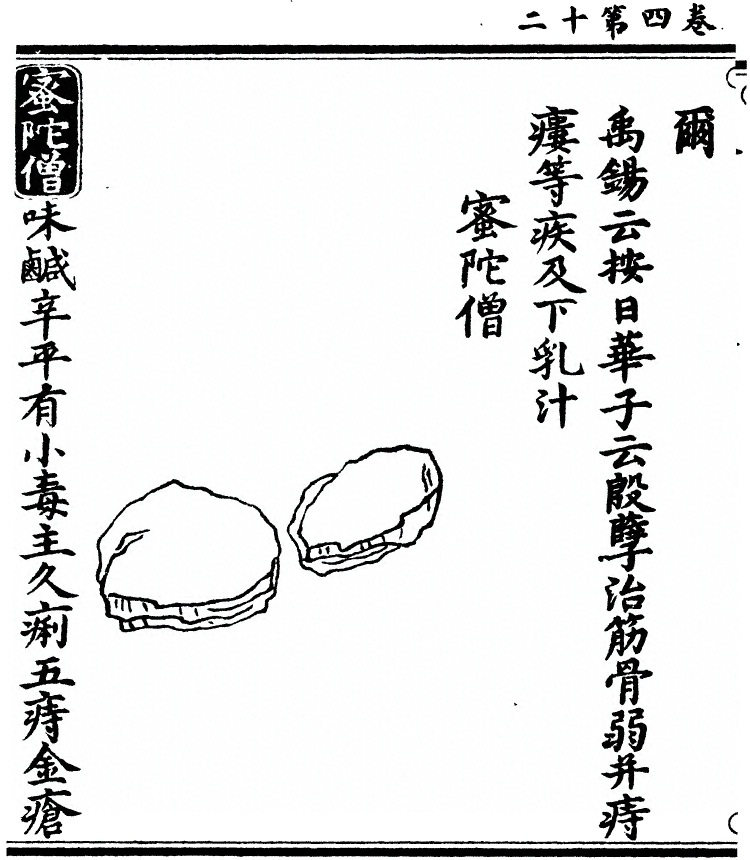 卷四第十二
爾
禹錫云按日華子云殷孽治筋骨弱并痔
瘻等疾及下乳汁
蜜陀僧
蜜陀僧味鹹辛平有小毒主久痢五痔金瘡